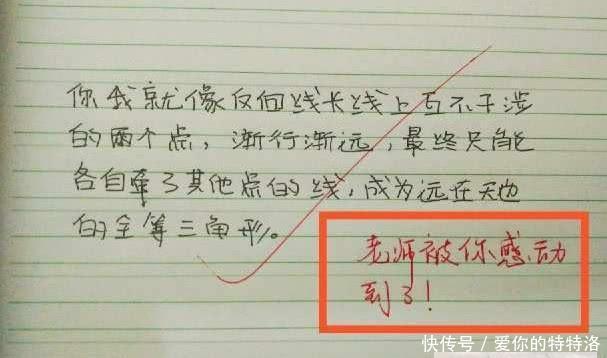 你我就像反向线长线上互不干涉
的两个点，渐行渐远，最终只能
各自牵了其他点的线，成为远在天边
的全等三角形。
老师被你感动
到了！
快传号／爱你的特特洛